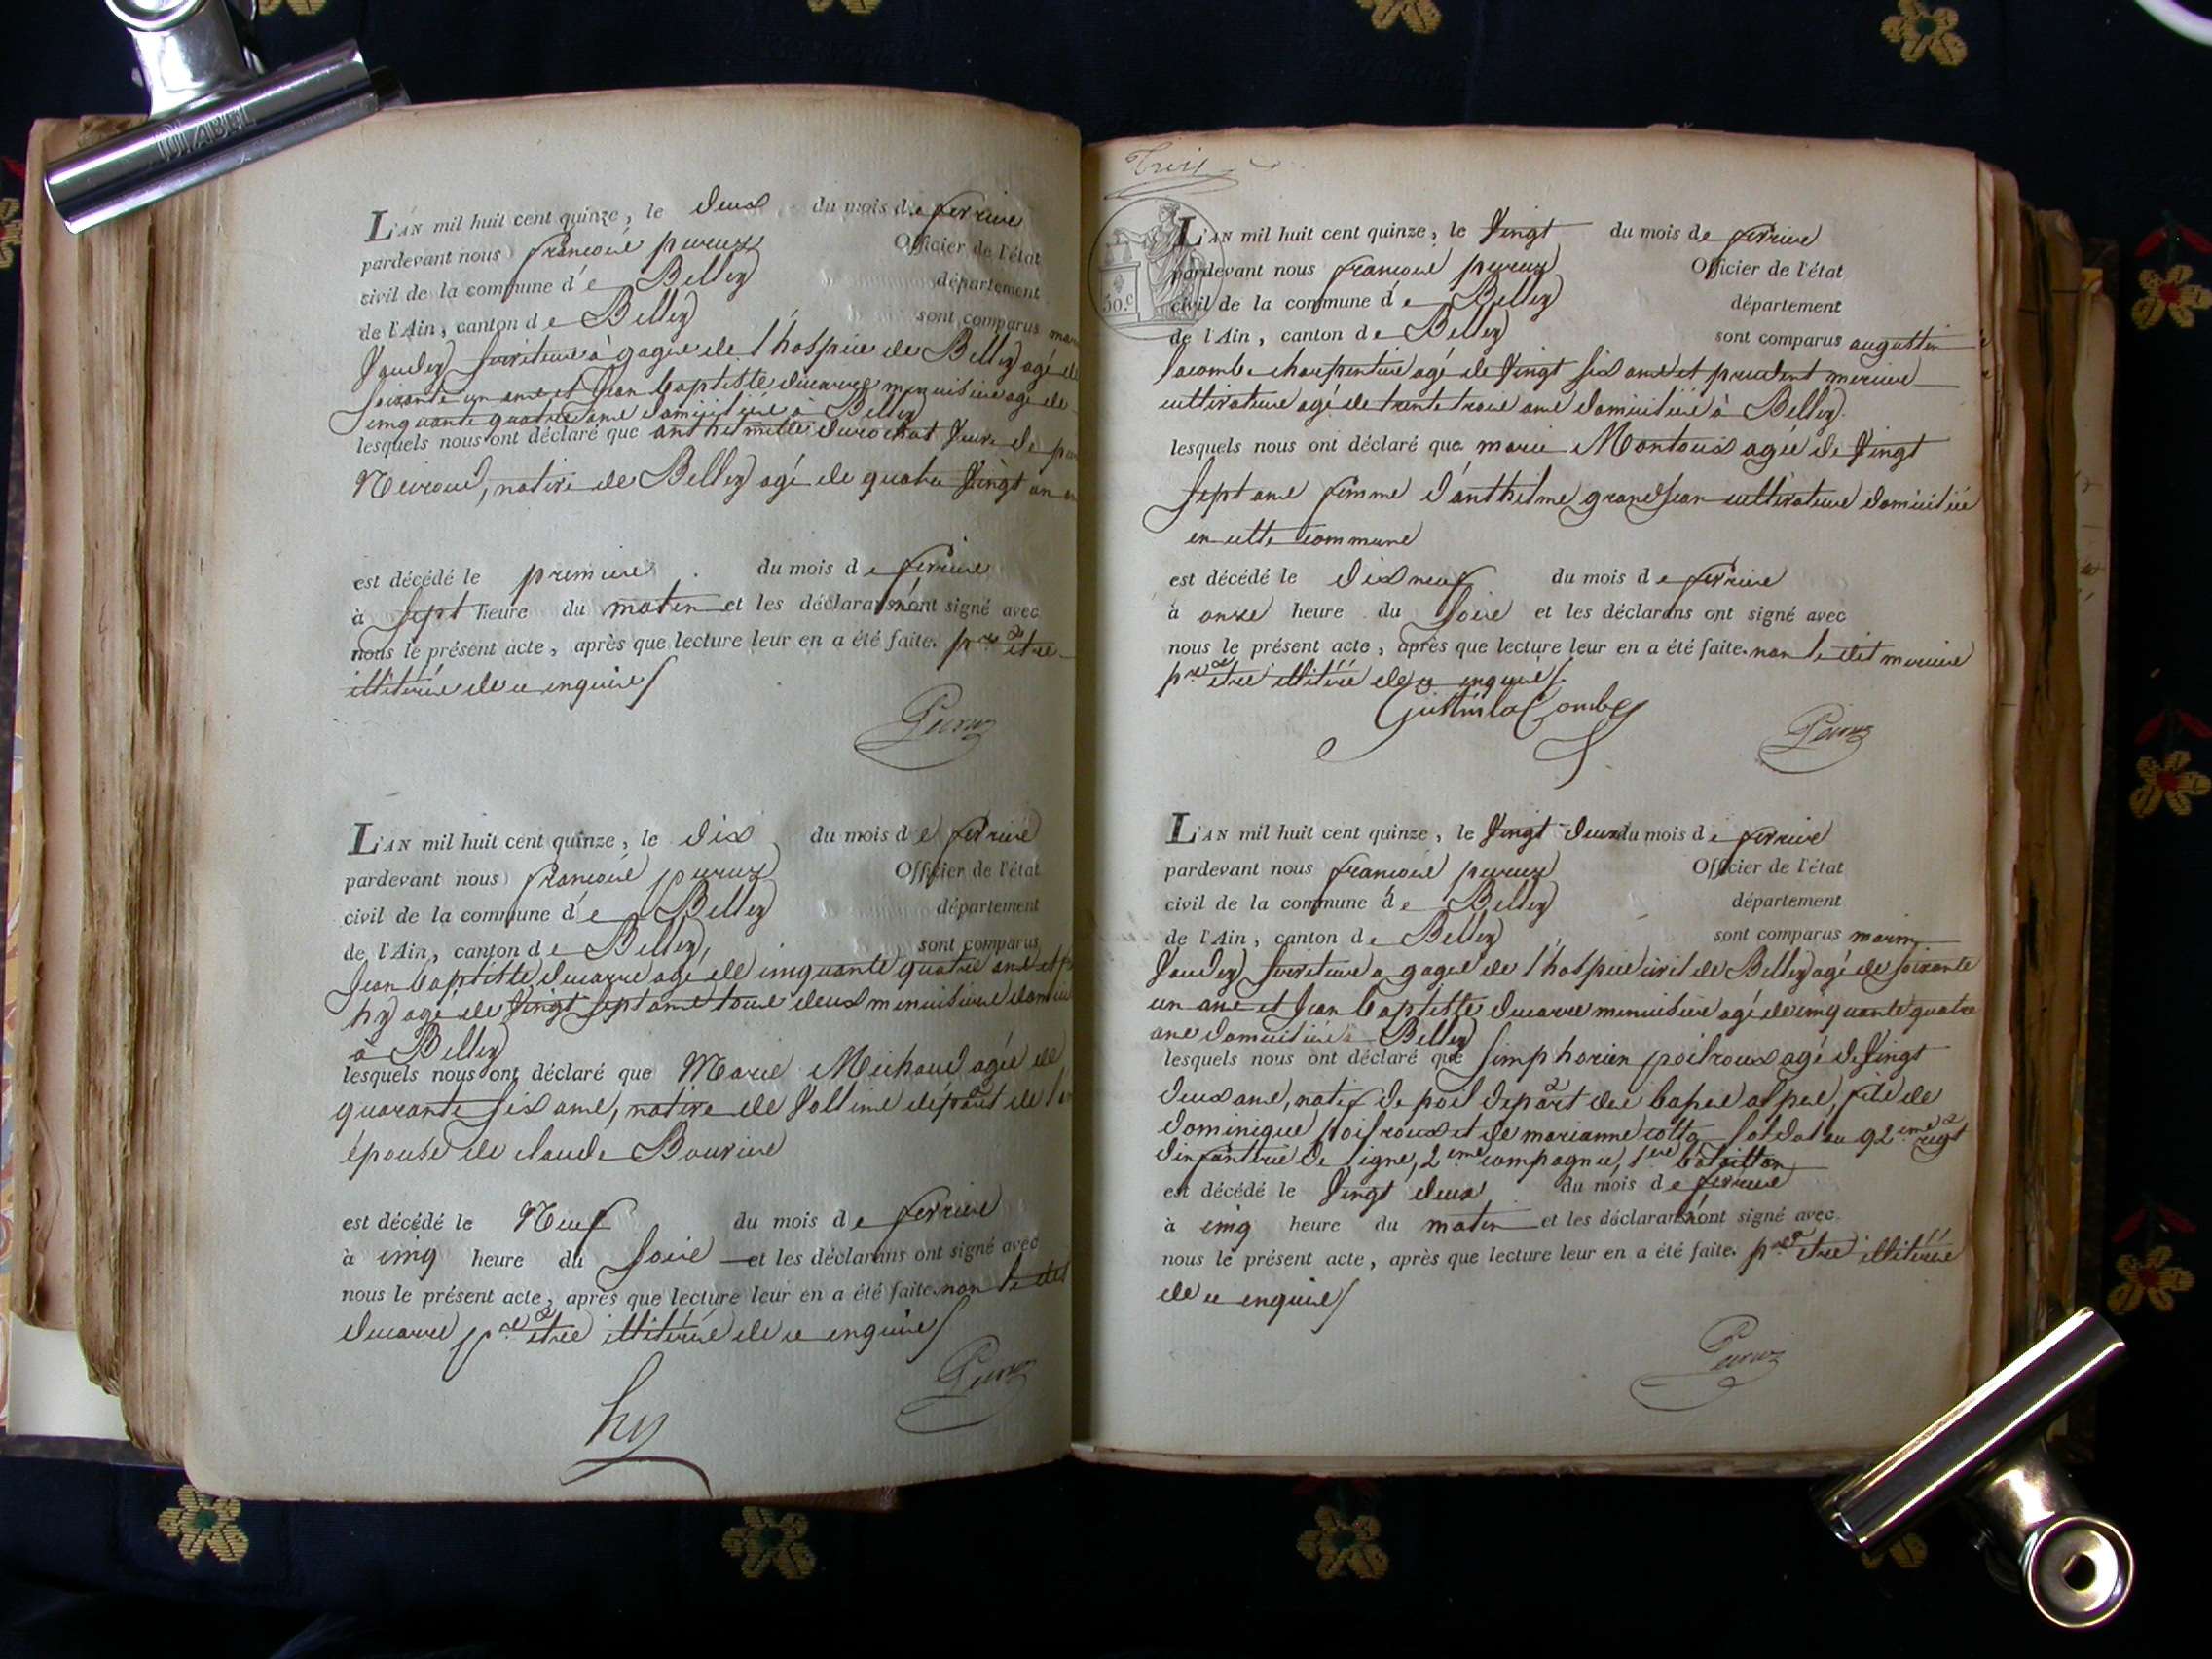 L'AN mil huit cent quinze, le deux du mois de fevrier
pardevant nous francois peruz Officier de l'état
civil de la commune d e Belley département
de l'Ain, canton d e Belley sont comparus
Vaudey serviteur à gages de l'hospice de Belley agé de
soixante un ans et Jean baptiste ducarre menuisier agé de
cinquante quatre ans domiciliés à Belley
lesquels nous ont déclaré que anthelmette durochat veuve de
Neiroud, native de Belley agé de quatre vingt un
est décédé le premier du mois d e fevrier
à sept heure du matin et les déclarans n'ont signé avec
nous le présent acte, après que lecture leur en a été faite. pr être
illitérés de ce enquis /
Peruz
L'AN mil huit cent quinze, le dix du mois d e fevrier
pardevant nous francois peruz Officier de l'état
civil de la commune d e Belley département
de l'Ain, canton d e Belley, sont comparus
Jean baptiste ducarre agé de cinquante quatre ans et
hy agé de vingt sept ans tous deux menuisiers
à Belley
lesquels nous ont déclaré que Marie Michaud agée de
quarante six ans, native de départ de
épouse de claude Bouvier
est décédé le Neuf du mois d e fevrier
à cinq heure du soir et les déclarans ont signé avec
nous le présent acte, après que lecture leur en a été faite. non le dit
ducarre pr être illitéré de ce enquis /
hy Peruz
30.c
L'AN mil huit cent quinze, le vingt du mois de fevrier
pardevant nous francois peruz Officier de l'état
civil de la commune d e Belley département
de l'Ain, canton d e Belley sont comparus augustin
lacombe charpentier agé de vingt six ans et prudent mercier
cultivateur agé de trente trois ans domiciliés à Belley.
lesquels nous ont déclaré que marie Montoux agée de vingt
sept ans femme d'anthelme grandjean cultivateur domiciliée
en cette commune
est décédé le dix neuf du mois d e fevrier
à onze heure du soir et les déclarans ont signé avec
nous le présent acte, après que lecture leur en a été faite. non le dit mercier
pr être illitéré de ce enquis /.
Peruz
L'AN mil huit cent quinze, le vingt deux du mois d e fevrier
pardevant nous francois peruz Officier de l'état
civil de la commune d e Belley département
de l'Ain, canton d e Belley sont comparus marin
Vaudey serviteur a gages de l'hospice civil de Belley agé de soixante
un ans et Jean baptiste ducarre menuisier agé de cinquante quatre
ans domiciliés Belley
lesquels nous ont déclaré que simphorien poilroux agé de vingt
deux ans, natif de poil depart des basses alpes, fils de
dominique poilroux et de marianne cotta soldat au 92eme regt
d'infanterie de ligne, 2eme compagnie, 1er bataillon
est décédé le vingt deux du mois d e fevrier
à cinq heure du matin et les déclarans n'ont signé avec
nous le présent acte, après que lecture leur en a été faite. pr être illitérés
de ce enquis /
Peruz